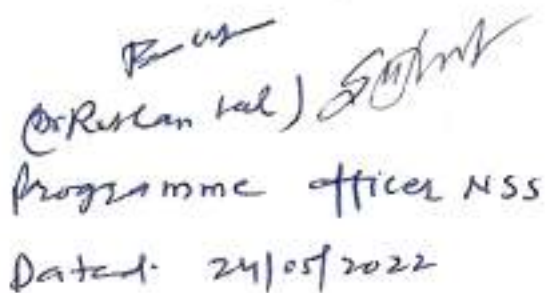 (Dr Roshan Lal)
Programme officer NSS
Dated. 24/05/2022